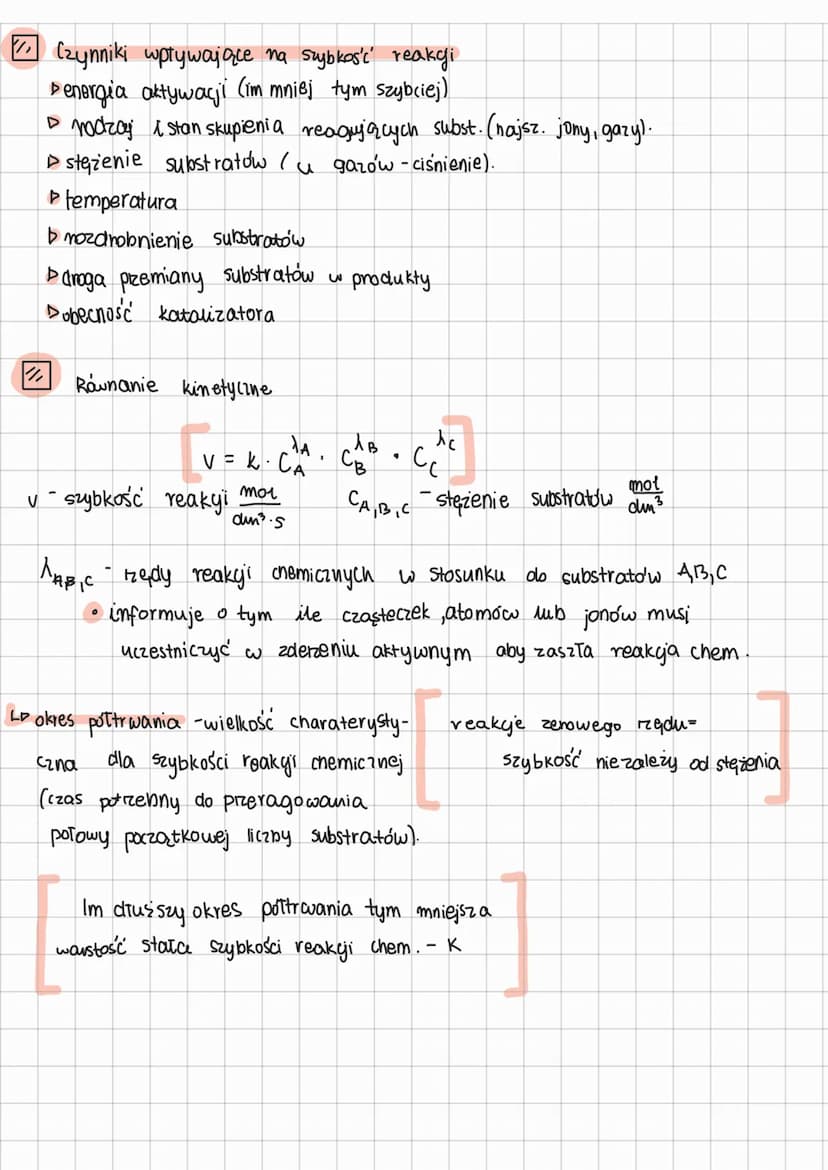 Czynniki wpływające na szybkość reakcji
▷ energia aktywacji (im mniej tym szybciej)
▷ rodzaj i stan skupienia reagujących subst. (najsz. jony, gazy).
▷ stężenie substratów (u gazów - ciśnienie).
▷ temperatura
▷ rozdrobnienie substratów
▷ droga przemiany substratów w produkty
▷ obecność katalizatora
Równanie kinetyczne
[v = k · C_A^λA · C_B^λB · C_C^λC]
v - szybkość reakcji mol/dm³·s C_A,B,C - stężenie substratów mol/dm³
λ_A,B,C - rzędy reakcji chemicznych w stosunku do substratów A,B,C
• informuje o tym ile cząsteczek, atomów lub jonów musi
uczestniczyć w zderzeniu aktywnym aby zaszła reakcja chem.
↳ okres półtrwania - wielkość charaterysty-
czna dla szybkości reakcji chemicznej
(czas potrzebny do przeragowania
połowy początkowej liczby substratów).
[reakcje zerowego rzędu =
szybkość niezależy od stężenia]
[Im dłuższy okres półtrwania tym mniejsza
warstość stała szybkości reakcji chem. - K]